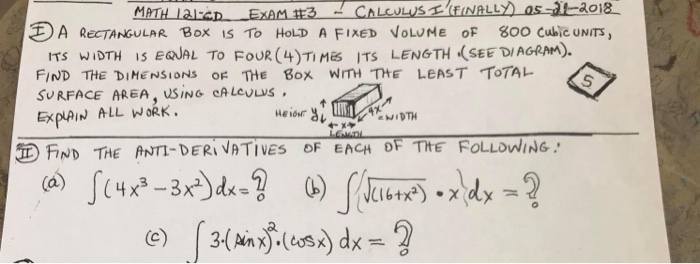 MATH 121-CD EXAM #3 - CALCULUS I (FINALLY) 05-21-2018
I A RECTANGULAR BOX IS TO HOLD A FIXED VOLUME OF 800 CUBIC UNITS,
ITS WIDTH IS EQUAL TO FOUR (4) TIMES ITS LENGTH (SEE DIAGRAM).
FIND THE DIMENSIONS OF THE BOX WITH THE LEAST TOTAL
SURFACE AREA, USING CALCULUS.
5
EXPLAIN ALL WORK.
HEIGHT y 4x = WIDTH
x
LENGTH
II FIND THE ANTI-DERIVATIVES OF EACH OF THE FOLLOWING:
(a) ∫(4x³ - 3x²) dx = ? (b) ∫{√(16+x²) • x} dx = ?
(c) ∫ 3·(sin x)²·(cos x) dx = ?